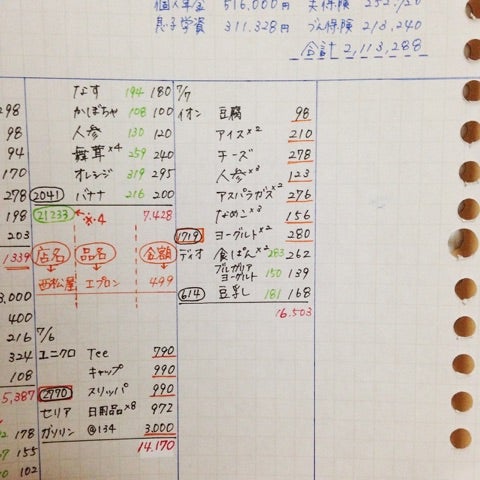 個人年金 516,000円 夫保険
息子学資 311,328円 づん保険 213,240
合計 2,113,288
298
98
94
170
278
198
203
1339
3,000
400
216
324
108
5,387
178
155
102
なす 194 180
かぼちゃ 108 100
人参 130 120
舞茸×4 259 240
オレンジ 319 295
2041 バナナ 216 200
21233 ※4 7.428
店名 品名 金額
西松屋 エプロン 499
7/6
ユニクロ Tee 790
キャップ 990
2770 スリッパ 990
セリア 日用品×8 972
ガソリン @134 3.000
14.170
7/7
イオン 豆腐 98
アイス×2 210
チーズ 278
人参×3 123
アスパラガス×2 276
なめこ×3 156
1719 ヨーグルト×2 280
ディオ 食ぱん×2 283 262
ブルガリアヨーグルト 150 139
614 豆乳 181 168
16.503